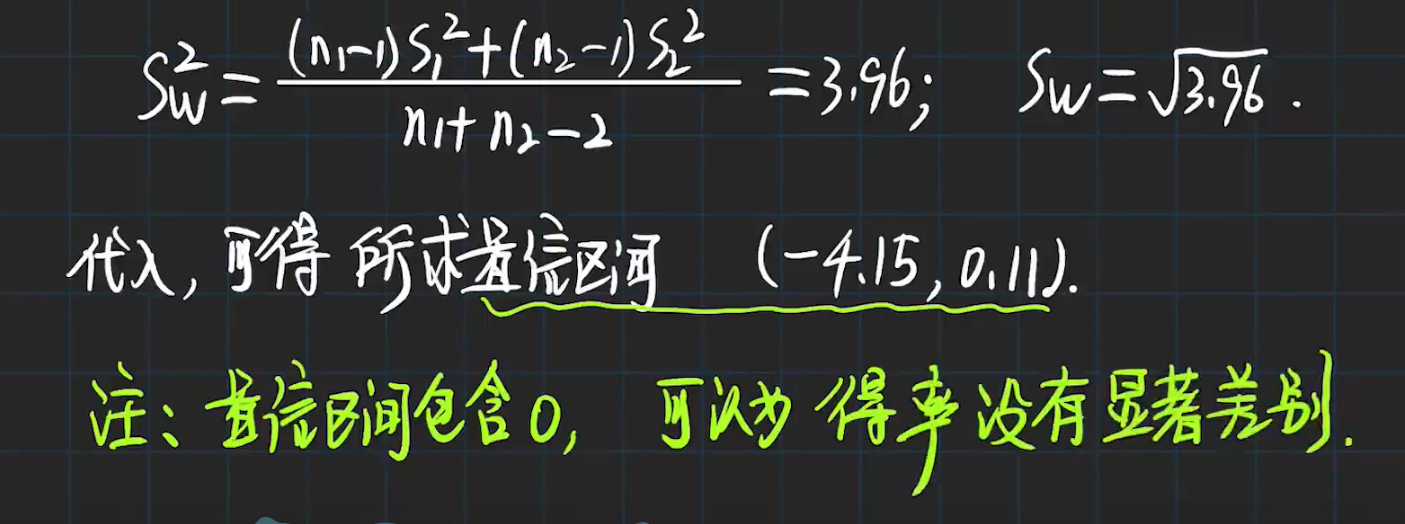 S_W^2 = \frac{(n_1-1)S_1^2+(n_2-1)S_2^2}{n_1+n_2-2} = 3.96; S_W = \sqrt{3.96}.
代入, 可得 所求置信区间 (-4.15, 0.11).
注: 置信区间包含0, 可认为 得率没有显著差别.